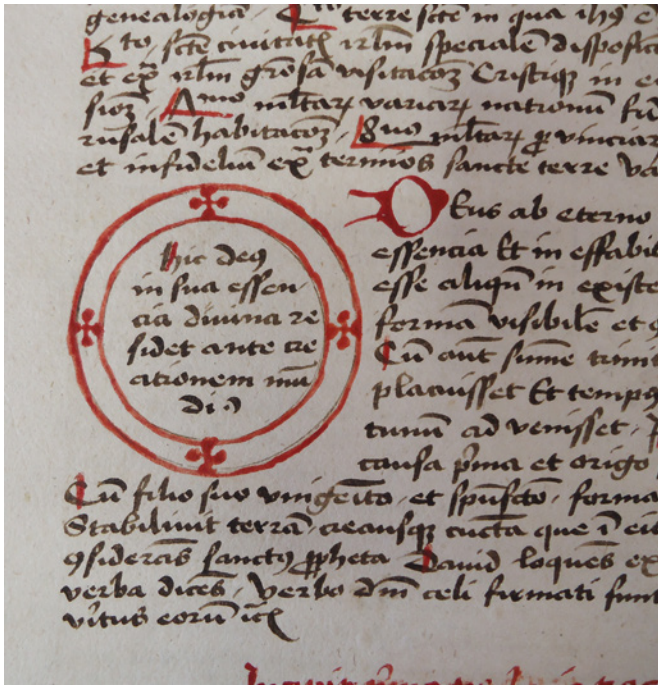 genealogiā. Cū terre scte in qua ihs e
Kto, scte ciuitatꝭ irlm specialē disposic
et exͣ irlm grosā visitacoꝫ Cristiqꝫ in e
sioꝫ. Aᵐᵒ mltaꝝ variaꝝ nationū fu
rusalē habitacoꝫ. mltaꝝ ꝓvinciar
et infideliū exͣ termios sancte terre va
hic deꝰ
in sua essen
cia diuina re
sidet ante cre
ationem mū
di
Deus ab eterno
essencia Et in effabil
esse aliqū in existe
formā visibilē et
Cū aūt sūme trinit
placuisset Et tempꝰ
tunū ad venisset.
causa pͥma et origo
Cū filio suo vnigēito. et spūscto. forma
Stabiliuit terrā. creansqꝫ cūcta que ī ei
ꝯsiderās sanctꝰ ꝓpheta Dauid loquēs ex
verba dicēs. verbo dnī celi firmati sunt
vͥtus eorū